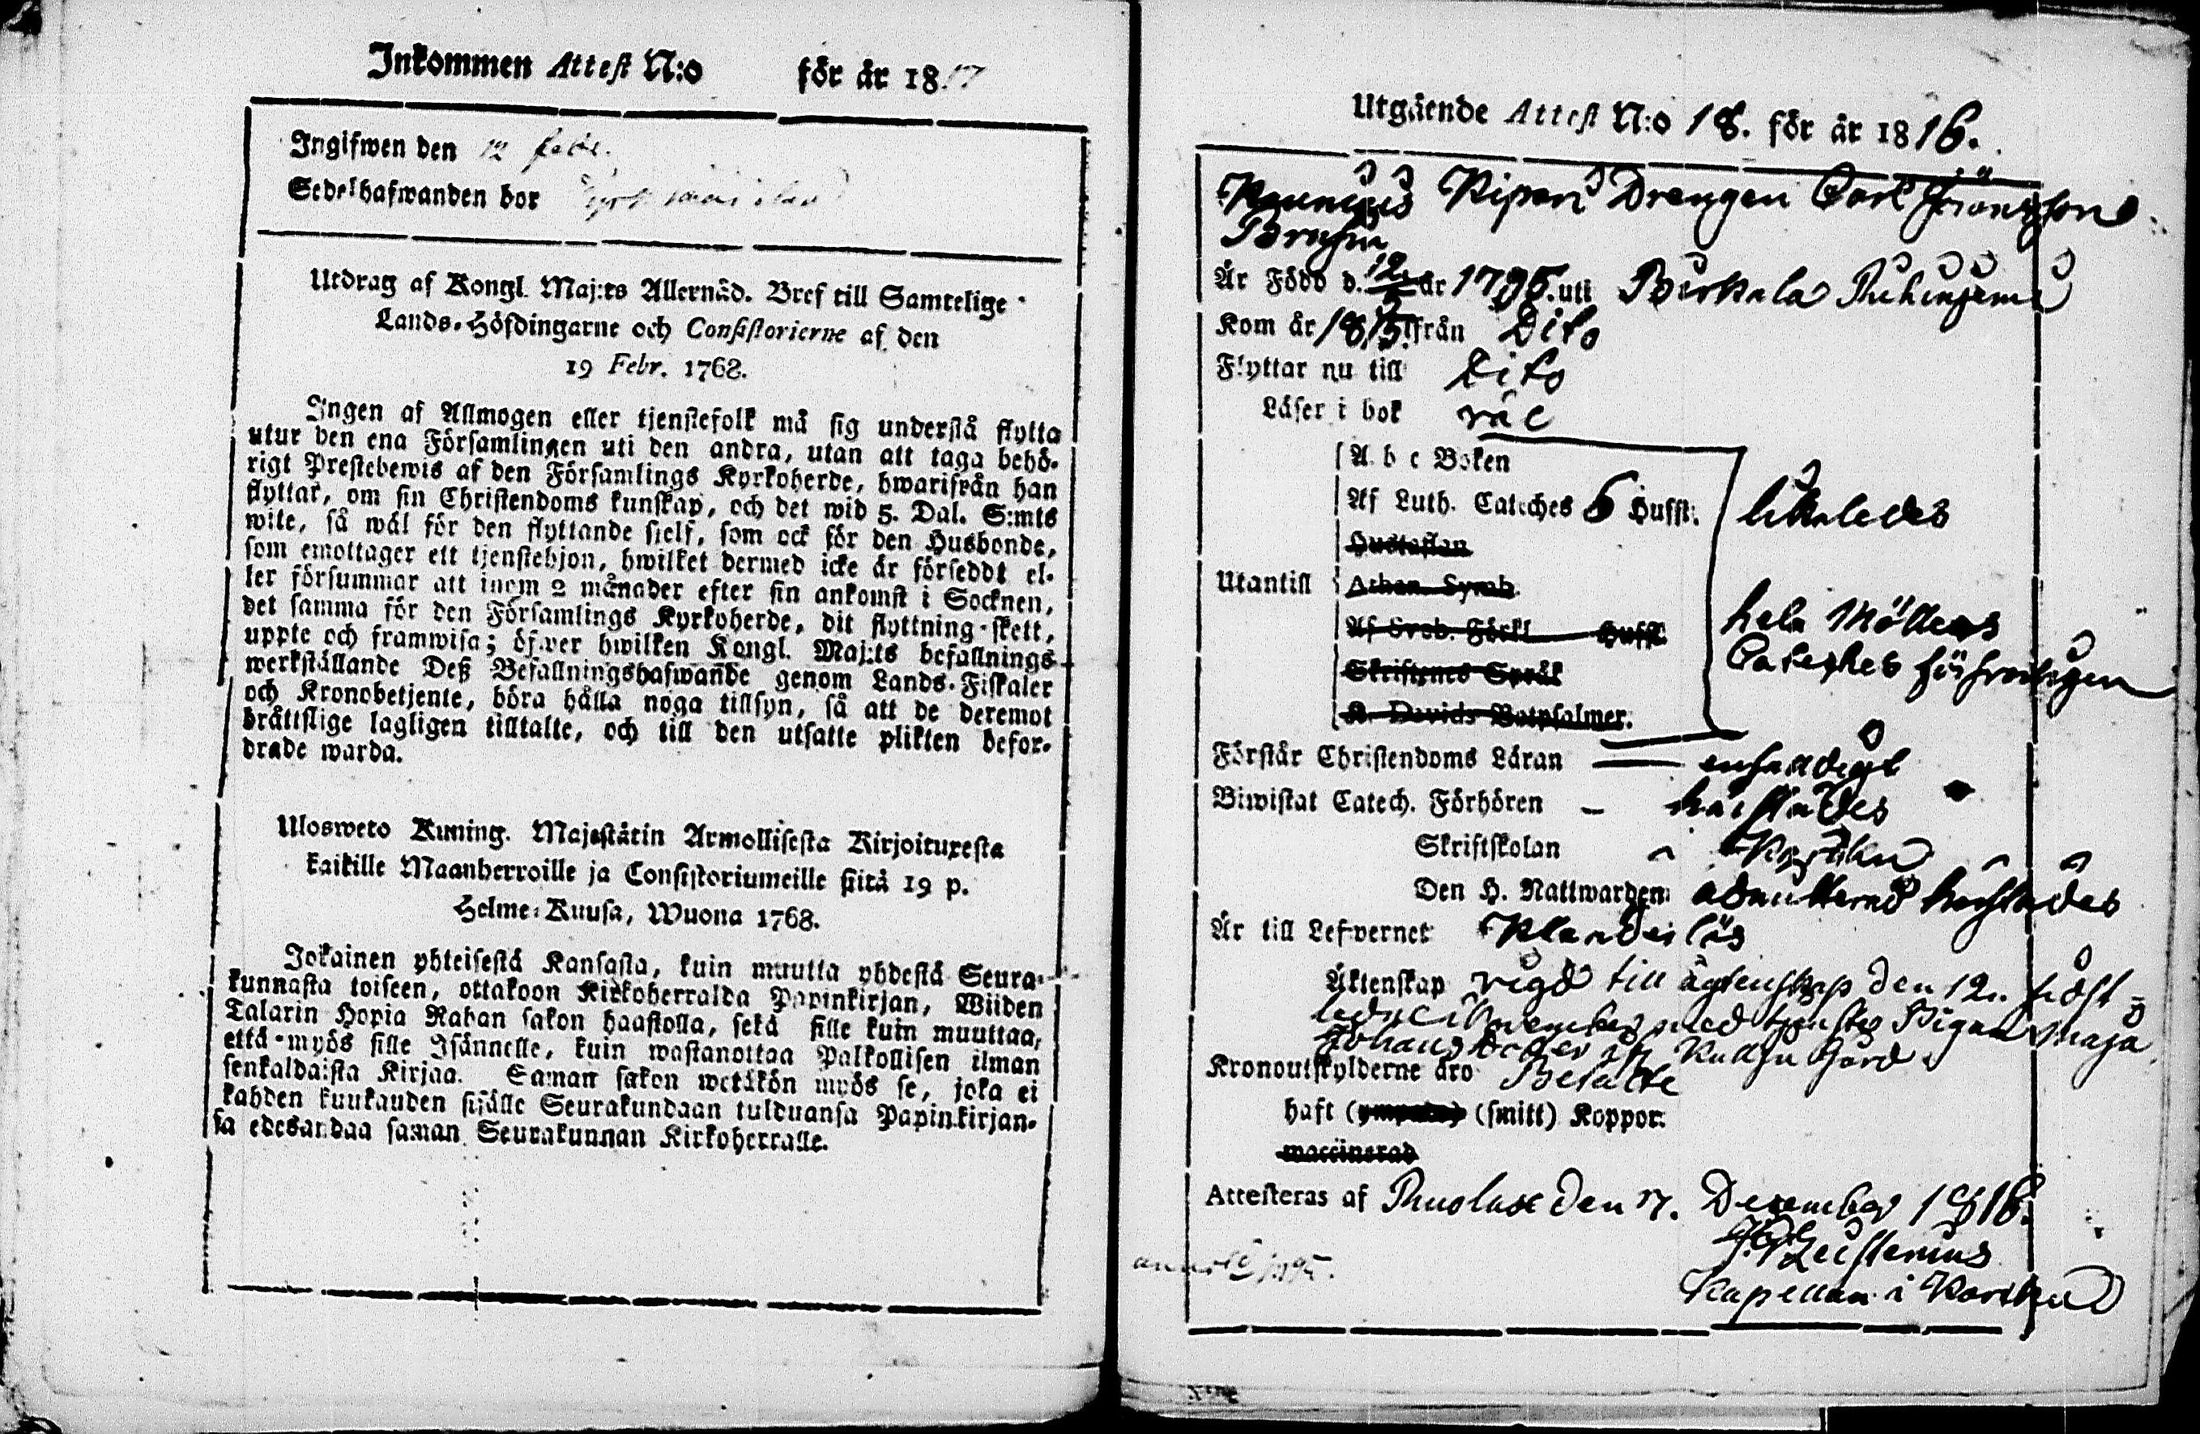 Inkommen Attest N:o för år 1817
Ingifwen den 12 febr.
Sedelhafwanden bor
Utdrag af Kongl. Maj:ts Allernåd. Bref till Samtelige
Lands-Höfdingarne och Consistorierne af den
19 Febr. 1768.
Ingen af Allmogen eller tjenstefolk må sig understå flytta
utur den ena Församlingen uti den andra, utan att taga behö-
rigt Prestebewis af den Församlings Kyrkoherde, hwarifrån han
flyttar, om sin Christendoms kunskap, och det wid 5. Dal. S:mts
wite, så wäl för den flyttande sjelf, som ock för den Husbonde,
som emottager ett tjenstehjon, hwilket dermed icke är försedd el-
ler försummar att inom 2 månader efter sin ankomst i Socknen,
det samma för den Församlings Kyrkoherde, dit flyttning skett,
uppte och framwisa; öfwer hwilken Kongl. Maj:ts befallnings
werkställande Deß Befallningshafwande genom Lands-Fiskaler
och Kronobetjente, böra hålla noga tillsyn, så att de deremot
bråttslige lagligen tilltalte, och till den utsatte plikten befor-
drade warda.
Ulosweto Kuning. Majestätin Armollisesta Kirjoituxesta
kaikille Maanherroille ja Consistoriumeille siitä 19 p.
Helme-Kuusa, Wuona 1768.
Jokainen yhteisestä Kansasta, kuin muutta yhdestä Seura-
kunnasta toiseen, ottakoon Kirkoherralda Papinkirjan, Wiiden
Talarin Hopia Rahan sakon haastolla, sekä sille kuin muuttaa,
että myös sille Isännelle, kuin wastanottaa Palkollisen ilman
senkaldaista Kirjaa. Saman sakon wetäkön myös se, joka ei
kahden kuukauden sisälle Seurakundaan tulduansa Papinkirjan-
sa edesandaa saman Seurakunnan Kirkoherralle.
Utgående Attest N:o 18. för år 1816.
Drengen Carl
Är Född d. 12 år 1795. uti Birkala
Kom år 1815 från Dito
Flyttar nu till Dito
Läser i bok
A b c Boken
Af Luth. Cateches 6 Hufst. likaledes
Hustaflan
Utantill Athan. Symb.
Af Sveb. Förkl. Hufst. hela Möllers
Skriftenes Språk Cateches
K. Davids Botpsalmer.
Förstår Christendoms Läran enfaldigt
Biwistat Catech. Förhören härstädes
Skriftskolan
Den H. Nattwarden admitterad härstädes
Är till Lefwernet Klanderlös
Äktenskap till ägtenskap den 12.
med Pigan Maja
Johans Dotter
Kronoutskylderne äro Betalte
haft (ympade) (smitt) Koppor.
waccinerad
Attesteras af den 17. December 1816.
Kapellan i Karkku